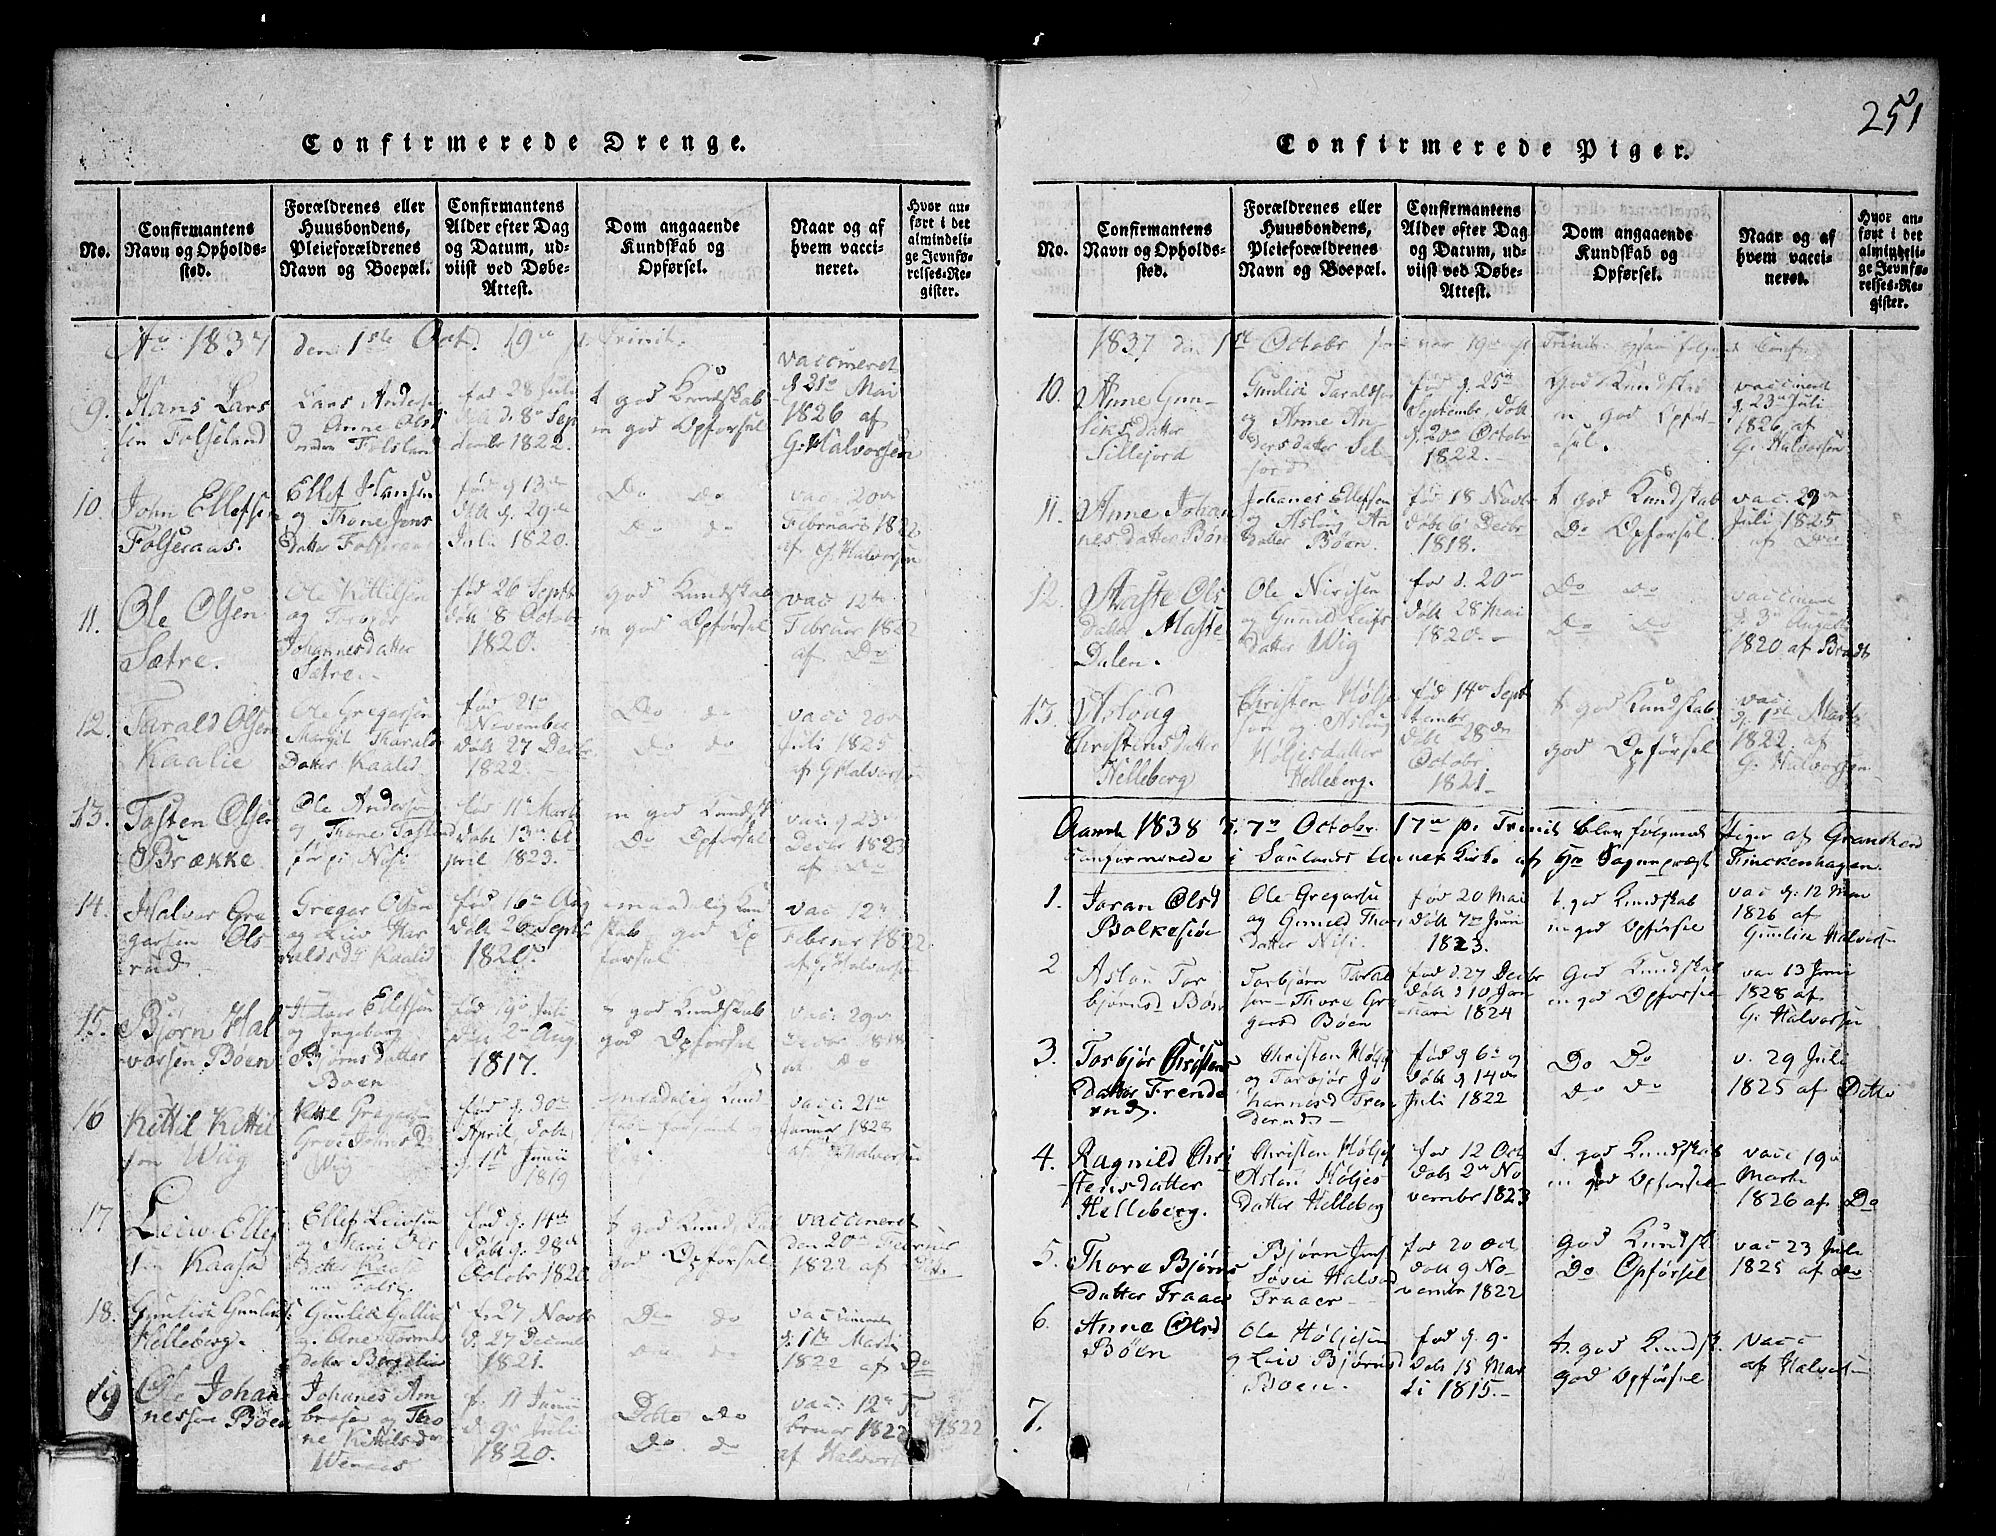 251
Confirmerede Drenge.
No.
Confirmantens
Navn og Opholds-
sted.
Forældrenes eller
Huusbondens,
Pleieforældrenes
Navn og Boepæl.
Confirmantens
Alder efter Dag
og Datum, ud-
viist ved Døbe-
Attest.
Dom angaaende
Kundskab og
Opførsel.
Naar og af
hvem vacci-
neret.
Hvor an-
ført i det
almindeli-
ge Jevnfø-
relses-Re-
gister.
1837 den 1ste Oct. 19de p. Trinit.
9.
Hans Lars
sen Folseland
Lars Anders
og Anne Ols
født 28 Juli
døbt d. 8 Sep
tember 1822.
t. god Kundskab
m god Opførsel
vaccineret
d 21de Mai
1826 af
G. Halvorsen
10.
John Ellefsen
Folseraas.
Ellef Hansen
og Thone Jons
datter Folseraas
født d 13de
døbt d. 29de
Juli 1820.
Do do
Do do
vac 20de
Februari 1822
af G. Halvorsen
11.
Ole Olsen
Sætre.
Ole Kittilsen
og Torbjør
Johannesdatter
Sætre.
født 26 Septb
døbt 8 Octobr
1820.
god Kundskab
m god Opførsel
vac 12te
Februar 1822
af Do
12.
Tarald Olsen
Kaalie
Ole Gregarsen
Margit Tharalds
Datter Kaalid.
født 21de
November
døbt 27 Decbr
1822.
Do do
Do do
vacc 20de
Juli 1825
af G Halvorsen
13.
Tosten Olsen
Brække.
Ole Andersen
og Thone Tostens
født 11te Marts
døbt 13de A
pril 1823.
m god Kundsk
Do Opførsel
vac. d 23de
Decbr 1823
af Do
14.
Halvor Gre
garsen Ols
rud
Gregar Olsen
og Liv Har
raldsd Kaalid
født 16de Aug
døbt 26 Septb
1820
maadelig Kund
skab god Op
førsel
vac 12te
Februar 1822
af G. Halvorsen
15.
Bjørn Hal
vorsen Bøen
Halvor Ellefsen
og Ingeborg
Bjørns Datter
Bøen
født 19de Juli
den 2de Aug
1817.
god Kundskab
god Opførsel
vac. 29de
af Do
16
Kittil Kittil
sen Wiig
Kittil Gregarsen
Groe Johns D
Wiig
født d. 30te
April, døbt
d. 1ste Junii
1819
maadelig Kund
vacc. 21de
Januar 1828
af G. Halvorsen
17.
Leiv Ellef
sen Kaasa
Ellef Leivsen
og Mari Ols
Datter Kaasa
født d. 14de
døbt d. 28de
Octobr 1820
t god Kundskab
god Opførsel
vaccineret
den 20de Februar
1822 af
18.
Gunlik Gunliks
Helleberg.
Gunlik
f. 27 Novbr
d. 27 Decemb
1821.
Do do
Do do
vaccineret
d. 1ste Marti
1822 af Do
19
Ole Johan
nessen Bøen
Johanes Am
og Tho
ne Kittilsd
f. 11 Junii
d 9de Juli
1820.
Ditto do
Do. do
vac: 12te Fe
bruar 1822
af Halvorsen
1822
Confirmerede Piger.
No.
Confirmantens
Navn og Opholds-
sted.
Forældrenes eller
Huusbondens,
Pleieforældrenes
Navn og Boepæl.
Confirmantens
Alder efter Dag
og Datum, ud-
viist ved Døbe-
Attest.
Dom angaaende
Kundskab og
Opførsel.
Naar og af
hvem vacci-
neret.
Hvor an-
ført i det
almindeli-
ge Jevnfø-
relses-Re-
gister.
1837 den 1ste Octobr som var 19de p. Trinit. følgende Conf.
10.
Anne Gun-
liksdatter
Sillejord
Gunlik Taraldsen
og Anne An
dersdatter Sil-
jord
fød d. 25de
Septembr, døbt
d. 20de Octobr
1822.
God Kundskab
m god Opfør-
sel.
vaccineret
d. 23de Juli
1826 af
G. Halvorsen
11.
Anne Johan
nesdatter Bøen
Johanes Ellefsen
og Aslaug An
datter Bøen.
født 18 Novbr
døbt 6te Decbr
1818.
t god Kundskab
Do Opførsel.
vac. 29de
Juli 1825
af Do
12.
Aaste Ols
datter Aaste
Dalen.
Ole Nirisen
og Gunild Leifs
datter Wig
fød d. 20de
døbt 28 Mai
1820.
Do Do
Do Do
vaccineret
d. 3de August
1820 af Brodt
13.
Aslaug
Christensdatter
Helleberg
Christen Hølje
sen og Aslaug
Høljesdatter
Helleberg.
fød 14de Sept
tembr
døbt 28de
Octobr
1821.
t god Kundskab
god Opførsel
vac.
d. 1ste Marts
1822. af
G. Halvorsen
Aaret 1838 d. 7de Octobr. 17de p. Trinit blev følgende Piger af Grandsherred
Confirmerede i Saulands Annex Kirke af Hr. Sognepræst Finckenhagen.
1.
Joran Olsd
Bolkesiøe
Ole Gregarsen
og Gunild Thor
datter Nisi.
fød 20 Mai
døbt 7de Juni
1823.
t. god Kundskab
m god Opførsel
vac d. 12 Mai
1826 af
Gunlik Halvorsen
2
Aslau Tor
bjørnsd Bøen
Torbjørn Tarald
sen Thore Gre
garsd Bøen
fød d. 27 Decbr
døbt d 10 Jan
uari 1824
God Kundskab
m god Opførsel
vac 13 Junii
1828 af
G. Halvorsen
3.
Torbjør Christens
Datter Frende
rud.
Christen Høljes
og Torbjør Jo
hannesd Fren
derud
fød d 6te og
døbt d 14de
Juli 1822
Do Do
Do Do
v. 29 Juli
1825 af Ditto
4.
Ragnild Chri
stensdatter
Helleberg.
Christen Høljes
Aslau Høljes
Datter Helleberg
fød 12 Oct
døbt 2de No
vembr 1823
t. god Kundskab
m god Opførsel
vacc 19de
Marts
1826 af Do
5.
Thore Bjørns
datter Traaer
Bjørn Jens
Søvei Halvord
Traaer
fød 20 Oct
døbt 9 No
vembr 1822
god Kundsk
Do Opførsel
vac 23 Juli
1825 af Do
6.
Anne Olsd
Bøen
Ole Høljesen
og Leiv Bjørnsd
Bøen.
fød d. 9de
døbt 15 Mar
ti 1815.
t. god Kundsk.
god Opførsel
vacc
af Halvorsen
7.